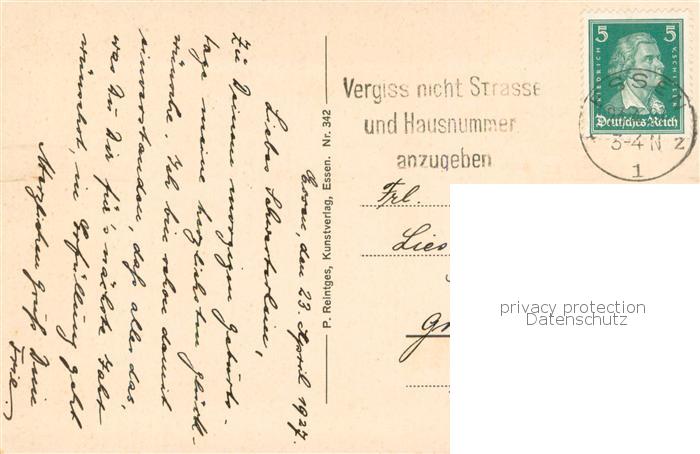 Essen, den 23. April 1927.
Liebes Schwesterlein,
Zu Deinem morgigen Geburts-
tage meine herzlichsten Glück-
wünsche. Ich bin schon damit
einverstanden, daß alles das,
was Du Dir für's nächste Jahr
wünschst, in Erfüllung geht
Herzlichen Gruß Dein
P. Reintges, Kunstverlag, Essen. Nr. 342
Vergiss nicht Strasse
und Hausnummer
anzugeben
5 5
FRIEDRICH V. SCHILLER
Deutsches Reich
3-4 N
2
1
Frl.
Lies
privacy protection
Datenschutz